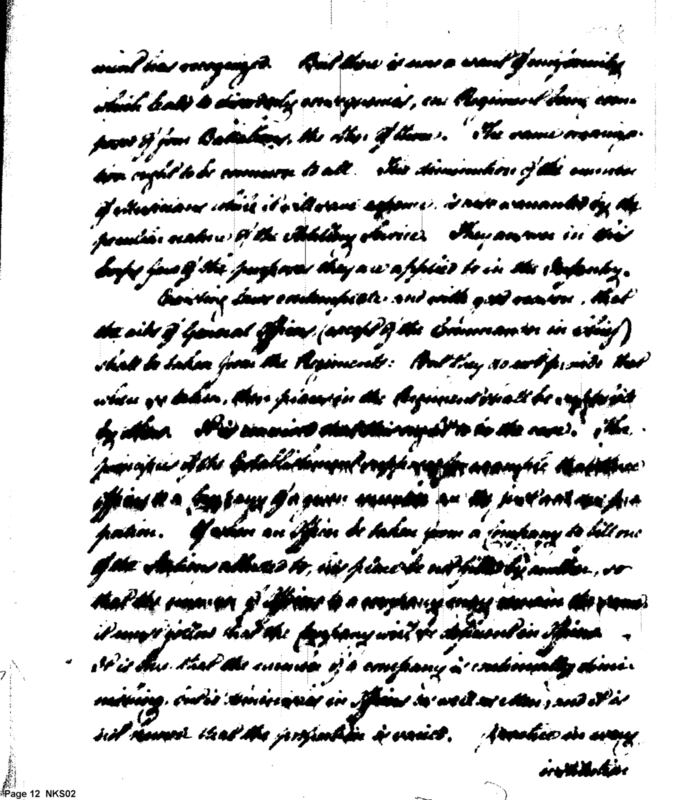 ment was recognized. But there is now a want of uniformity,
which leads to disorderly consequences, one Regiment being com-
posed of four Battalions, the other of three. The same organiza-
tion ought to be common to all. The diminution of the number
of Musicians while it will save expence, is also warranted by the
peculiar nature of the Artillery Service. They answer in this
Corps few of the purposes they are applied to in the Infantry.
Existing laws contemplate and with good reason, that
the aids of General Officers (except of the Commander in Chief)
shall be taken from the Regiments: But they do not provide that
when so taken, their places in the Regiment shall be supplied
by others. It is conceived that this ought to be the case. The
principles of the Establishment suppose for example that three
Officers to a Company of a given number are the just and due pro-
portion. If when an Officer be taken from a Company to fill one
of the Stations alluded to, his place be not filled by another, so
that the number of Officers to a company may remain the same,
it must follow that the Company will be deficient in Officers.
It is true that the number of a company is continually dimi-
nishing, but it diminishes in Officers as well as Men; and it is
not known that the proportion is varied. Practice in every
institution